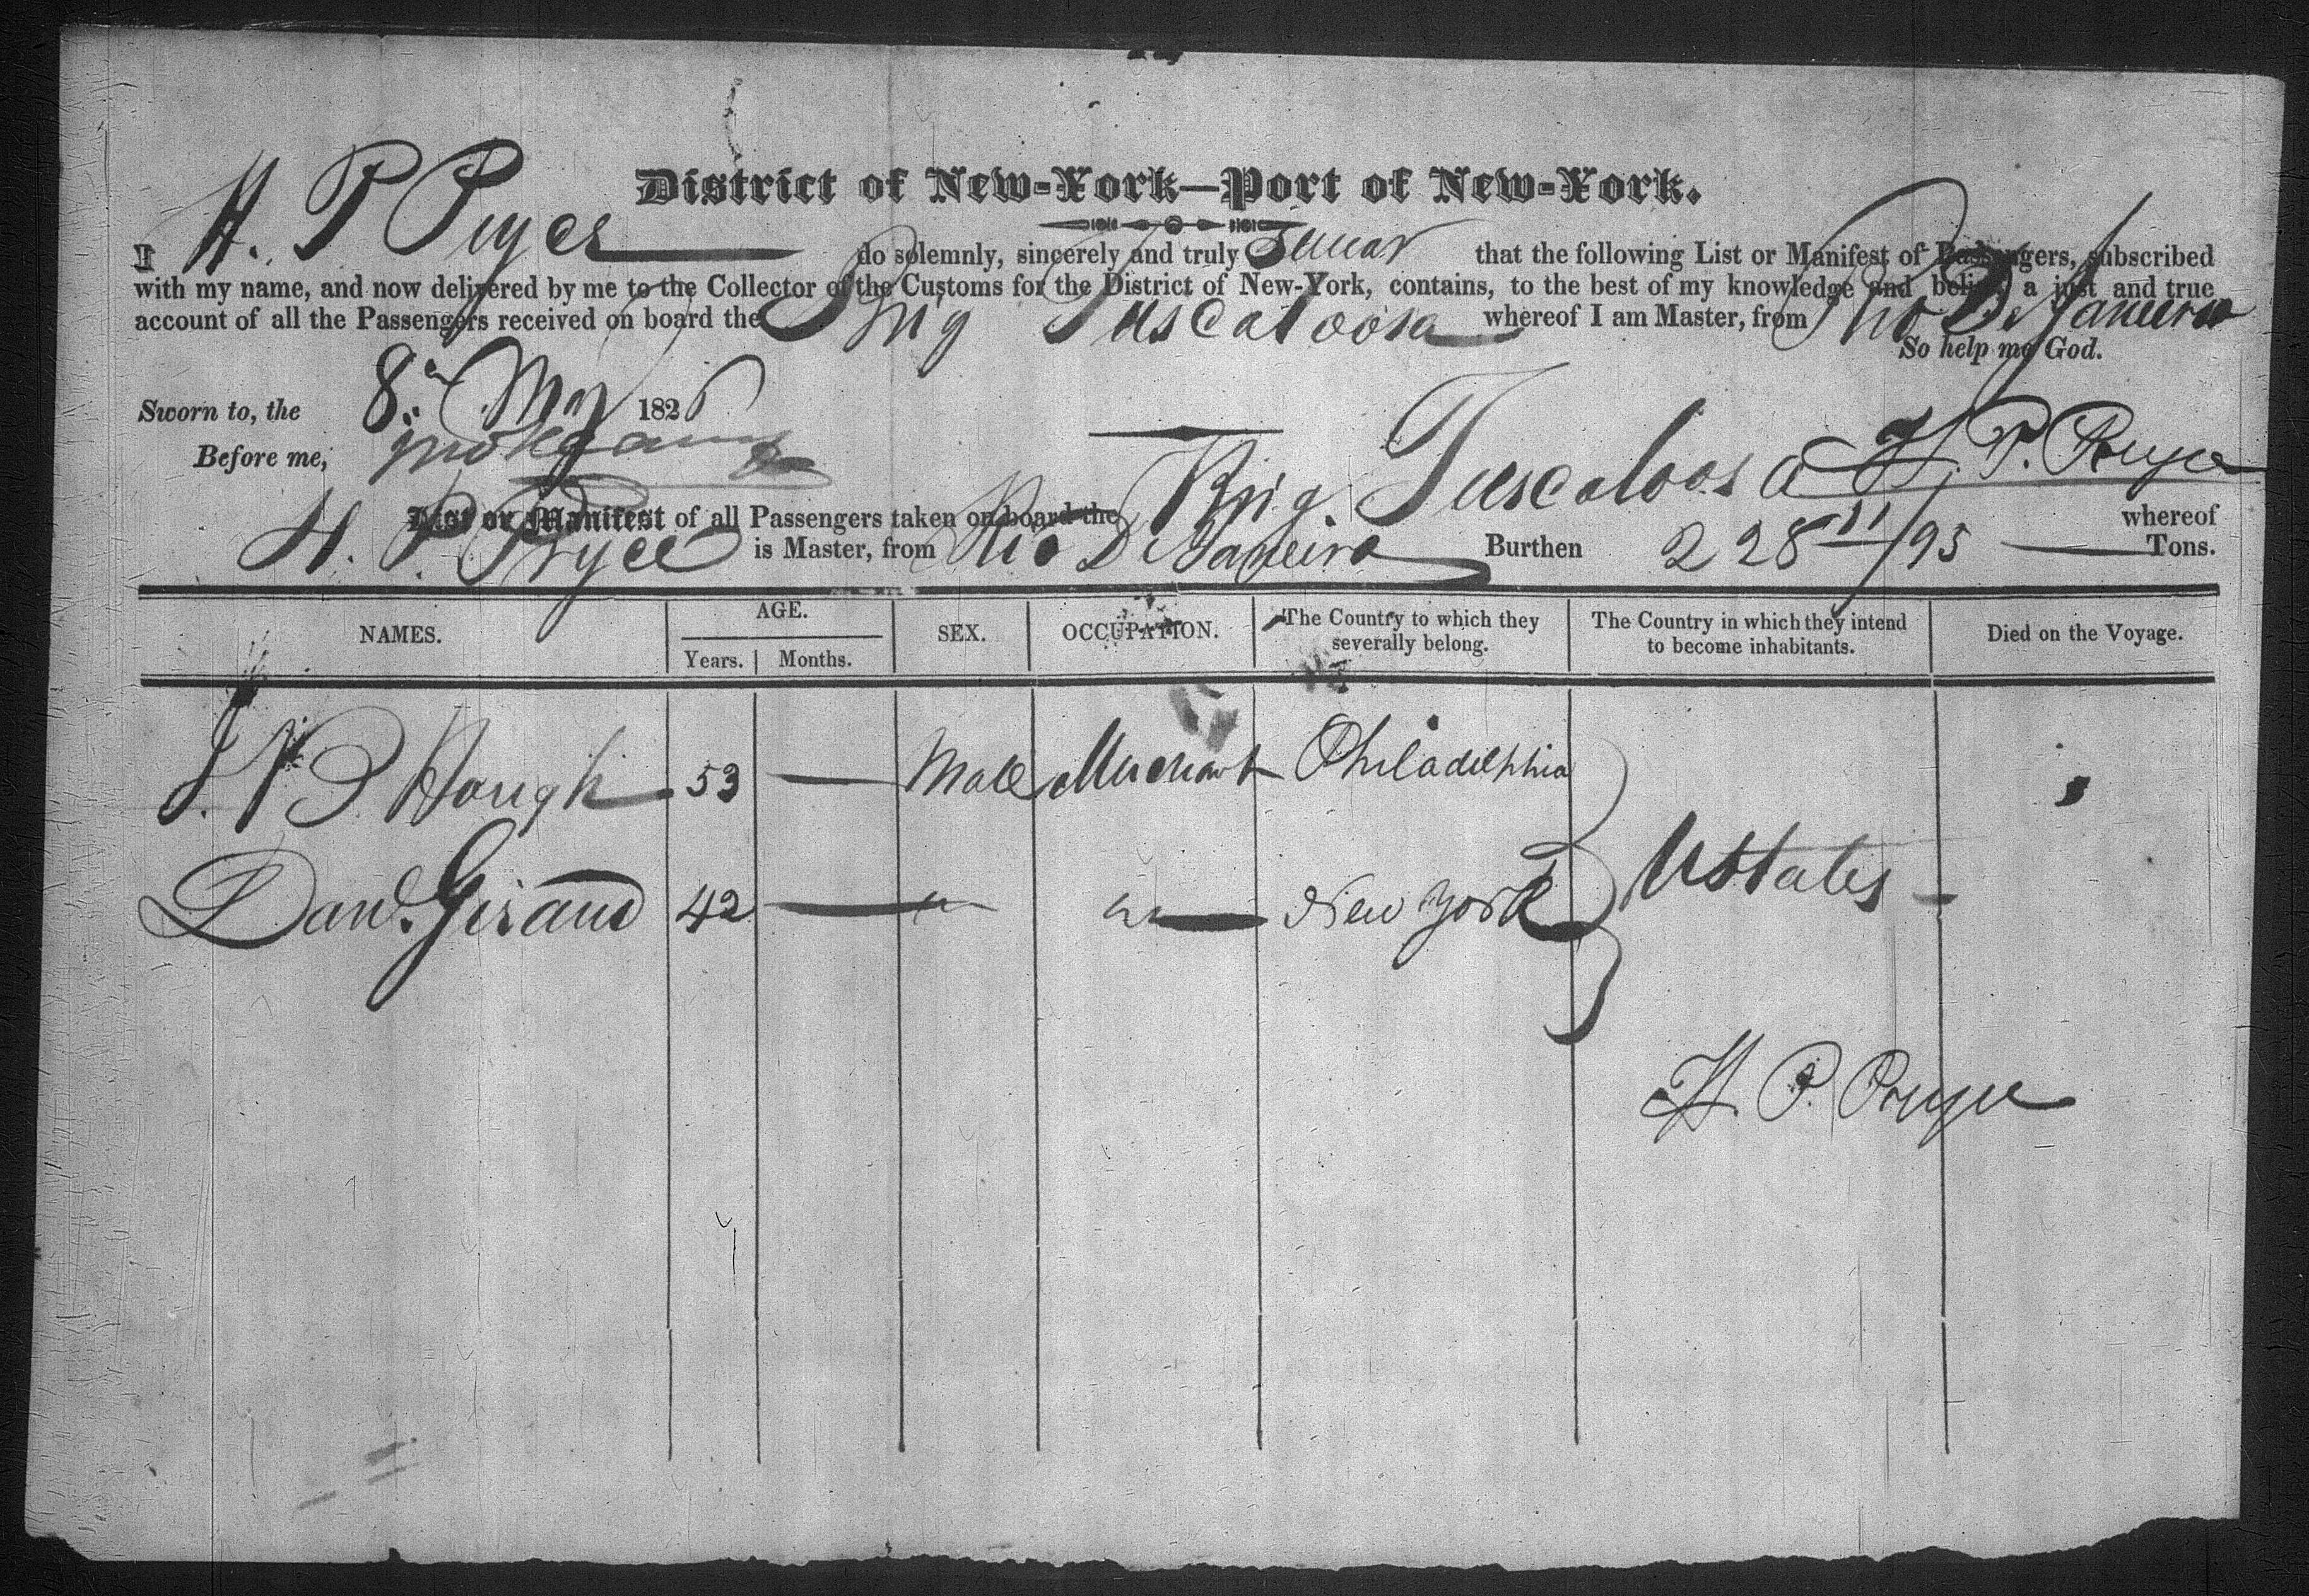 District of New-York—Port of New-York.
I H. P Pryce do solemnly, sincerely and truly Swear that the following List or Manifest of Passengers, subscribed
with my name, and now delivered by me to the Collector of the Customs for the District of New-York, contains, to the best of my knowledge and belief, a just and true
account of all the Passengers received on board the Brig Tuscaloosa whereof I am Master, from Rio De Janeiro
So help me God.
Sworn to, the 8th May 1826
Before me,
H. P. Pryce
List or Manifest of all Passengers taken on board the Brig. Tuscaloosa whereof
H. P. Pryce is Master, from Rio De Janeiro Burthen 228 11/95 Tons.
NAMES. AGE. Years. Months. SEX. OCCUPATION. The Country to which they severally belong. The Country in which they intend to become inhabitants. Died on the Voyage.
Hough 53 — Male Merchant Philadelphia
Danl. Giraud 42 — " " New York
UStates
H. P. Pryce